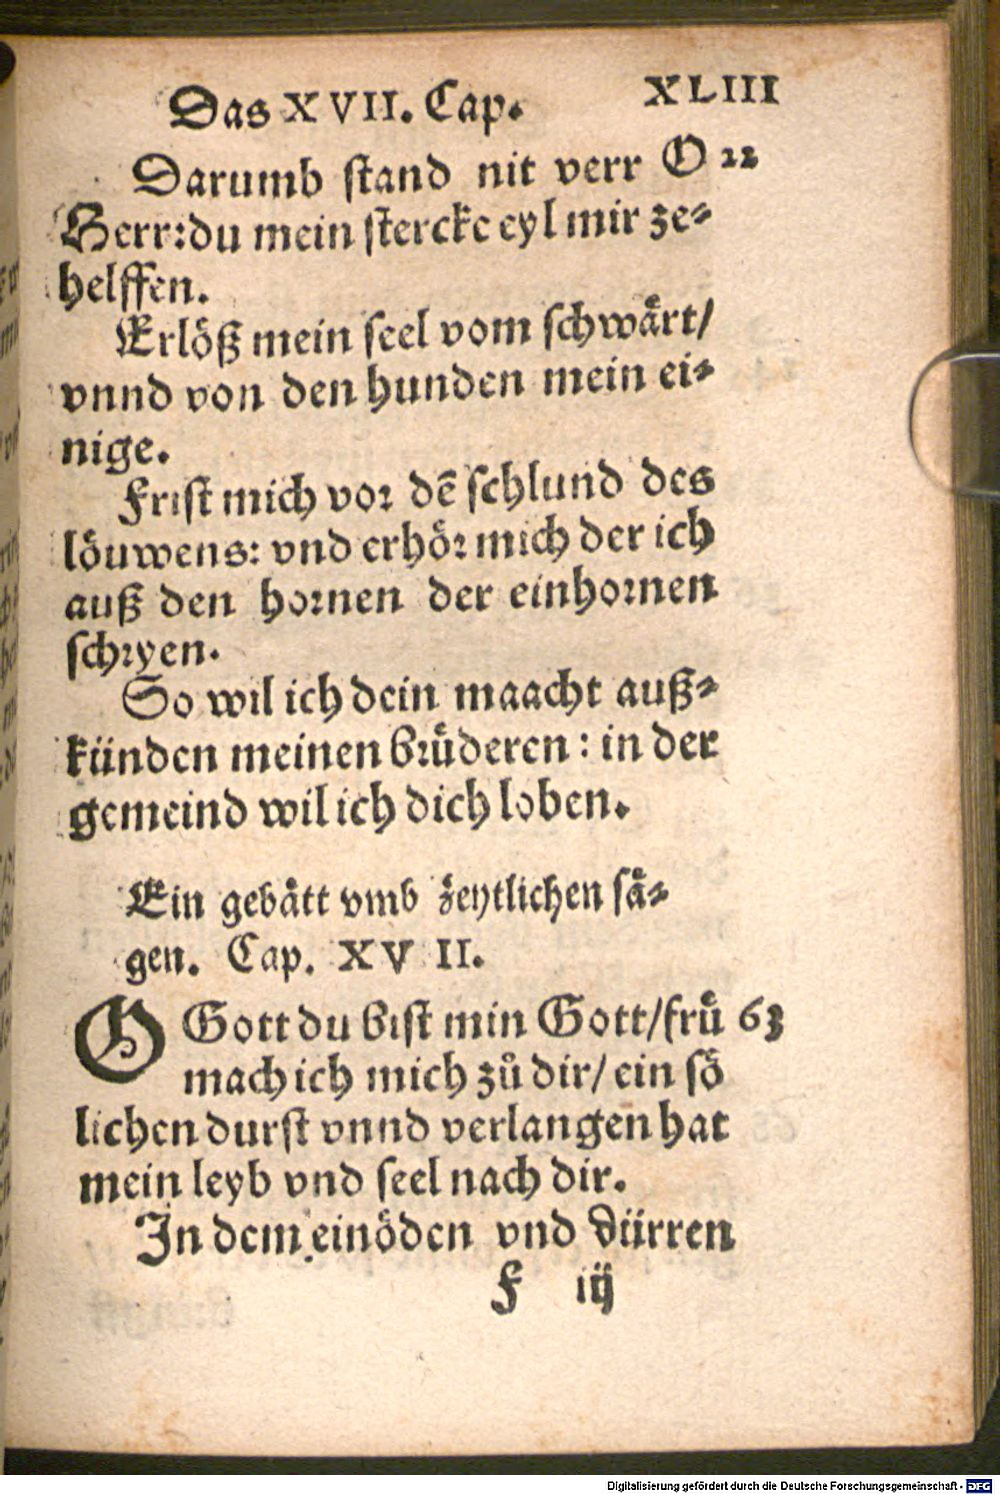 Das XVII. Cap. XLIII
Darumb stand nit verr O 22
Herr:du mein stercke eyl mir ze⸗
helffen.
Erlöß mein seel vom schwaͤrt/
vnnd von den hunden mein ei⸗
nige.
Frist mich vor dē schlund des
löuwens: vnd erhöꝛ mich der ich
auß den hoꝛnen der einhoꝛnen
schꝛyen.
So wil ich dein maacht auß⸗
künden meinen bꝛuͤderen : in der
gemeind wil ich dich loben.
Ein gebaͤtt vmb zeytlichen saͤ⸗
gen. Cap. XVII.
O Gott du bist min Gott/fruͤ 63
mach ich mich zů dir/ ein soͤ
lichen durst vnnd verlangen hat
mein leyb vnd seel nach dir.
In dem einöden vnd dürren
F iij
Digitalisierung gefördert durch die Deutsche Forschungsgemeinschaft - DFG